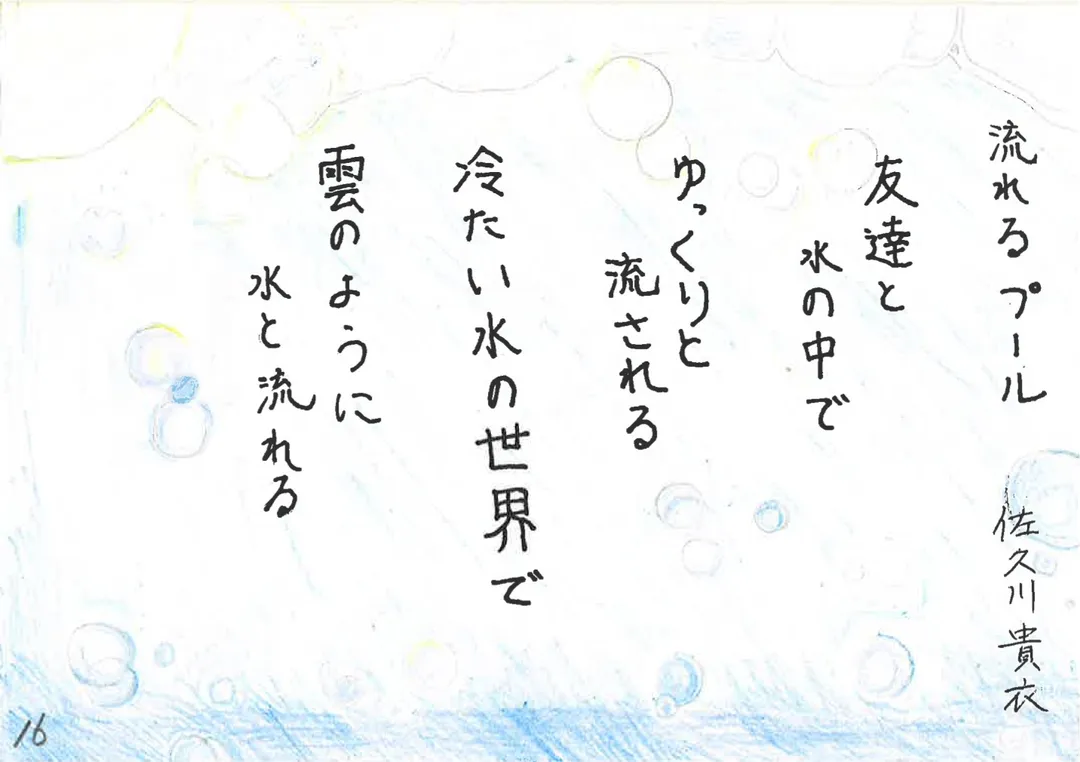 流れるプール
佐久川貴衣
友達と
水の中で
ゆっくりと
流される
冷たい水の世界で
雲のように
水と流れる
16